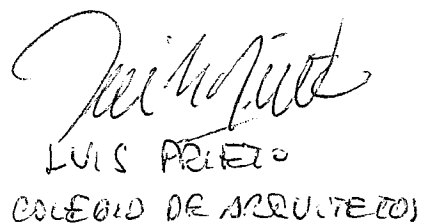 LUIS PRIETO
COLEGIO DE ARQUITETOS